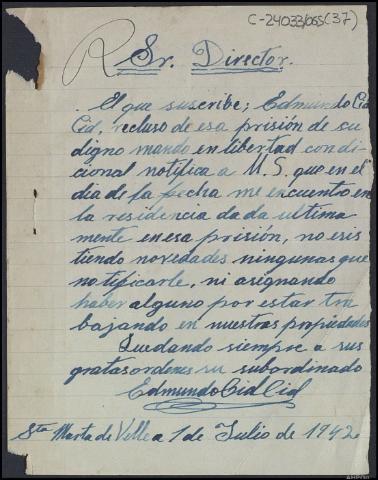 C-24033/065(37)
R
Sr. Director.
El que suscribe; Edmundo Cid
Cid, recluso de esa prisión de su
digno mando en libertad condi-
cional notifica a U.S. que en el
dia de la fecha me encuentro en
la residencia dada ultima
mente en esa prisión, no exis
tiendo novedades ningunas que
notificarle, ni asignando
haber alguno por estar tra
bajando en nuestras propiedades
Quedando siempre a sus
gratas ordenes su subordinado
Edmundo Cid Cid
Sta Marta de Velle a 1 de Julio de 1942